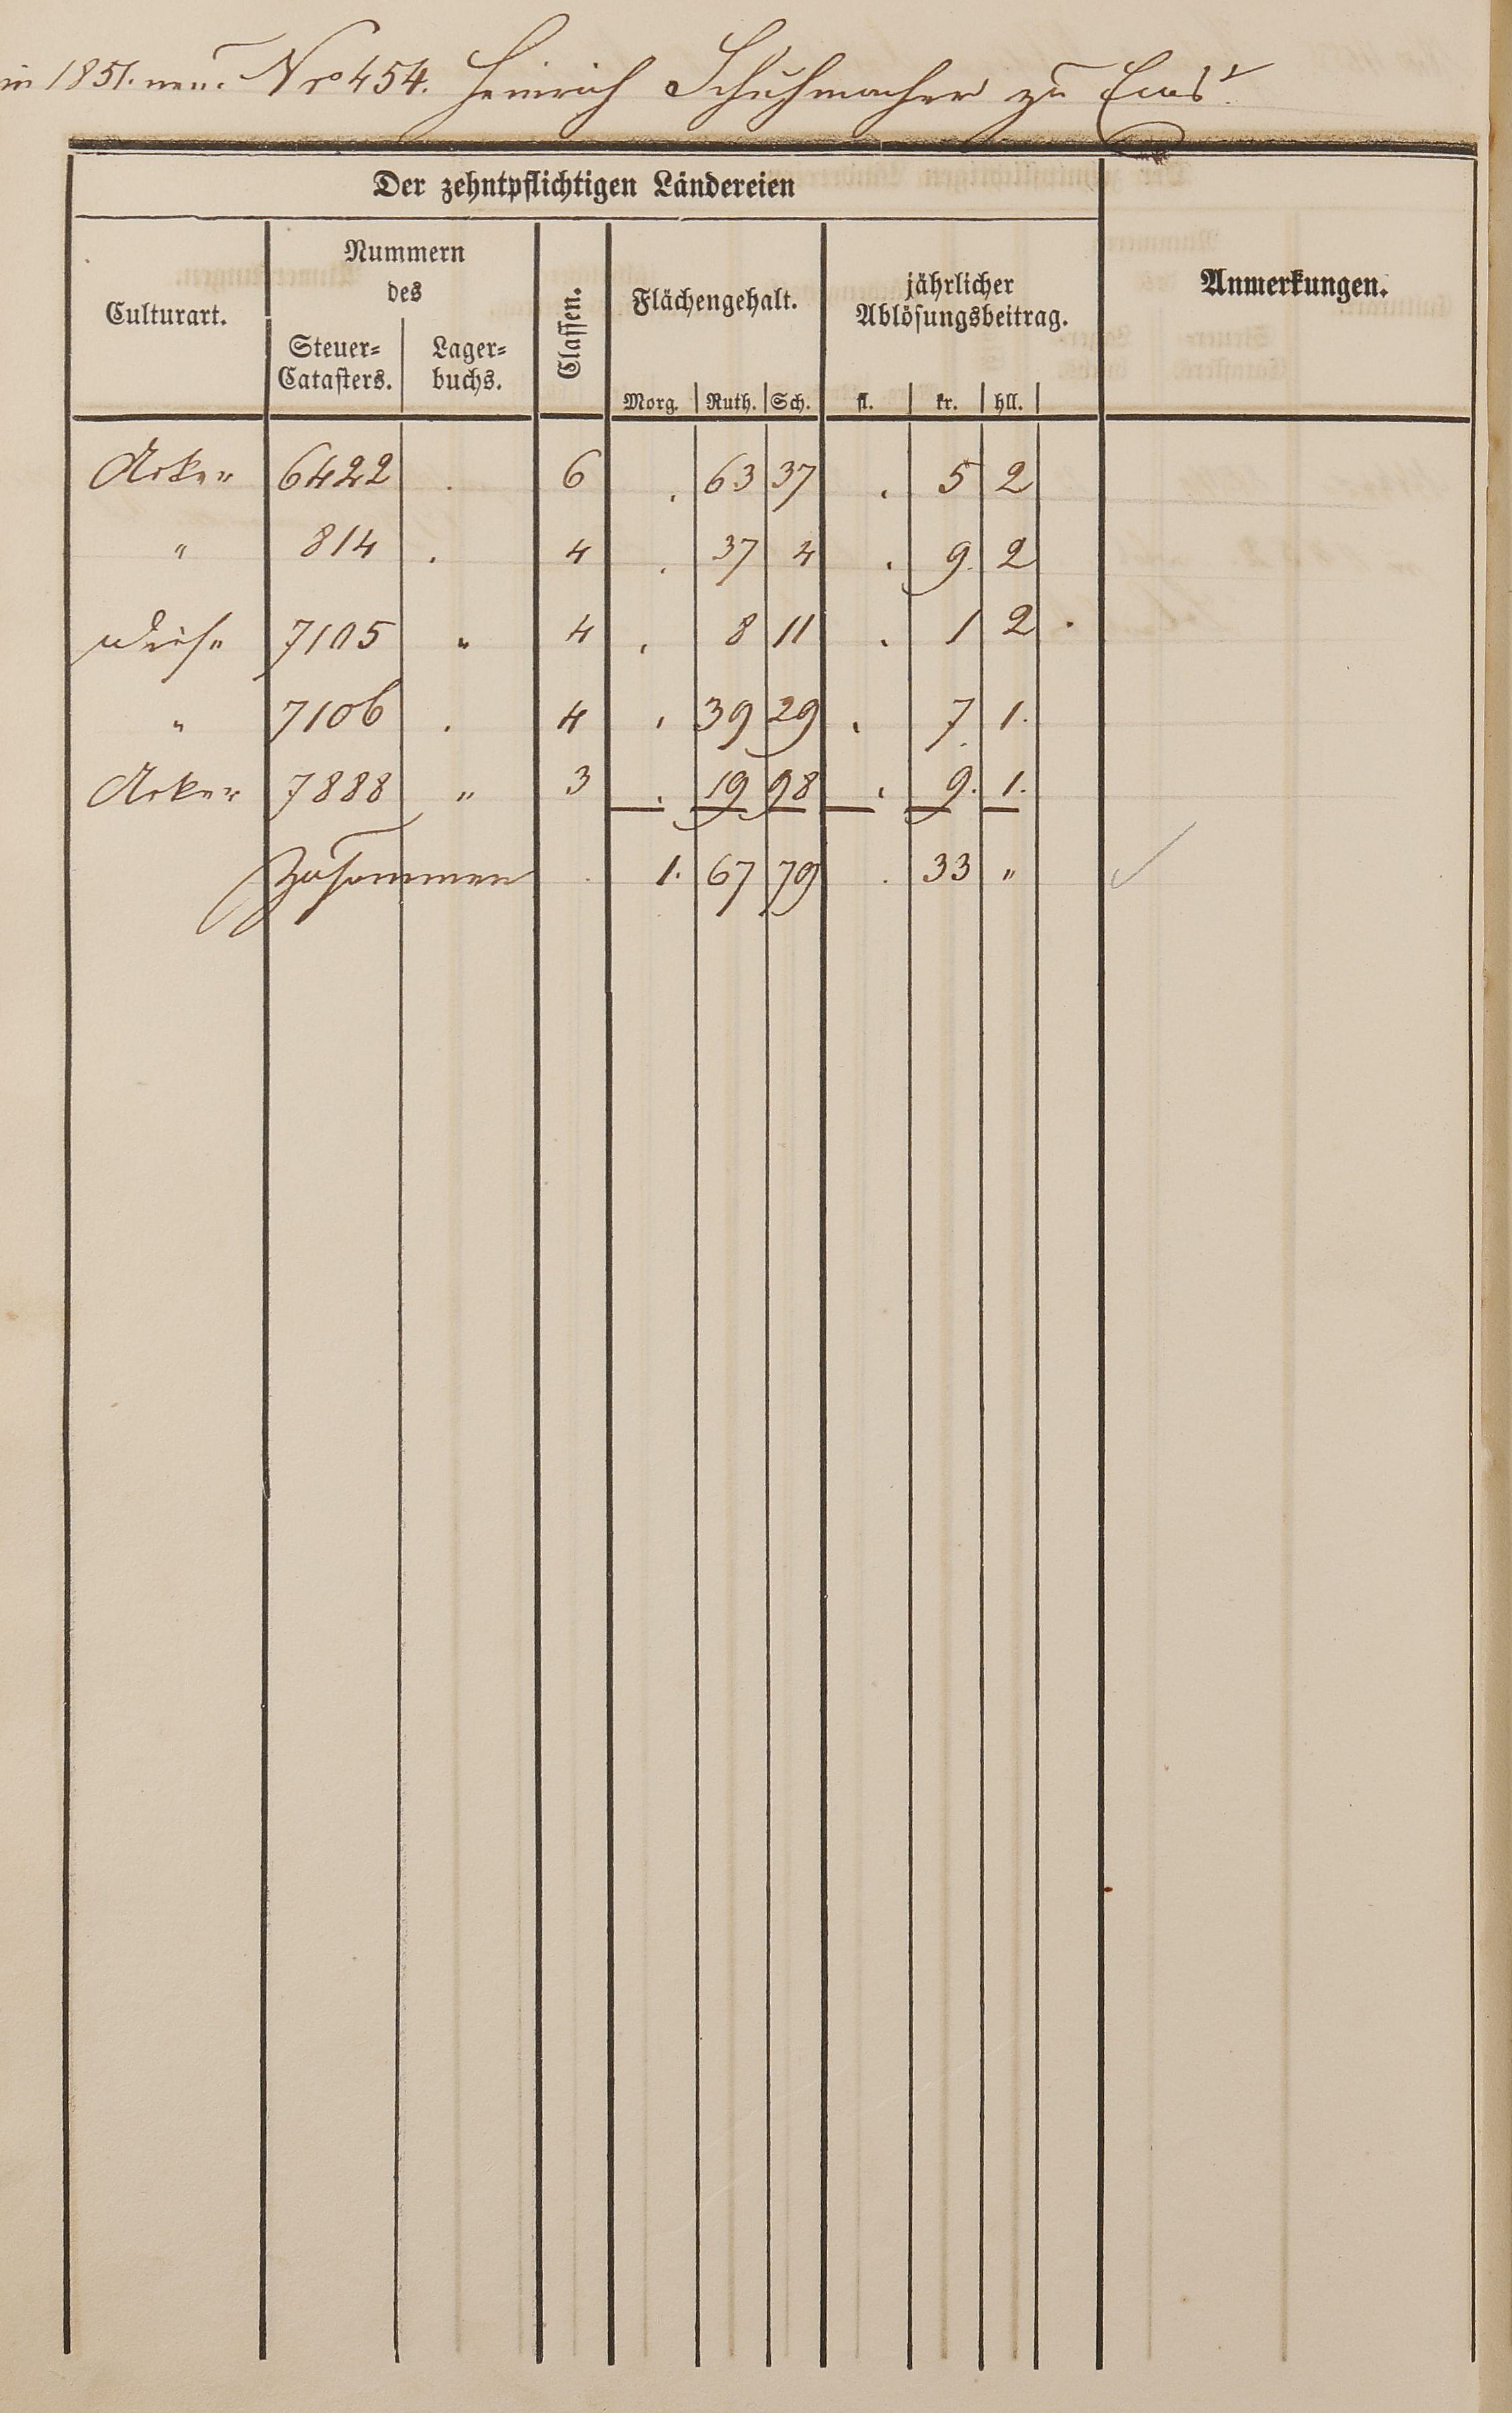 in 1851. neu. Nro 454. Heinrich Schuhmacher zu Ems
Der zehntpflichtigen Ländereien
Culturart.
Nummern
des
Steuer=
Catasters.
Lager=
buchs.
Classen.
Flächengehalt.
Morg. Ruth. Sch.
jährlicher
Ablösungsbeitrag.
fl. kr. hll.
Anmerkungen.
Acker 6422 . 6 . 63 37 . 5 2
" 814 . 4 . 37 4 . 9. 2
Wiese 7105 " 4 . 8 11 . 1 2 .
" 7106 . 4 . 39 29 . 7. 1.
Acker 7888 " 3 . 19 98 . 9. 1.
Zusammen . 1. 67 79 . 33 "